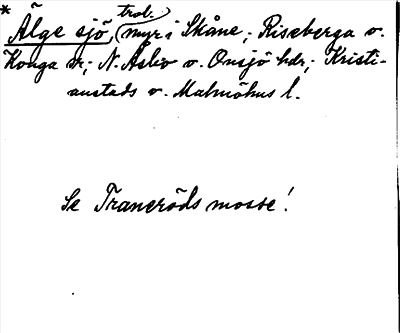 * Älge sjö, (trol. myr i Skåne; Riseberga o.
Konga sr; N. Åsbo o. Onsjö hdr; Kristi-
anstads o. Malmöhus l.
Se Traneröds mosse!